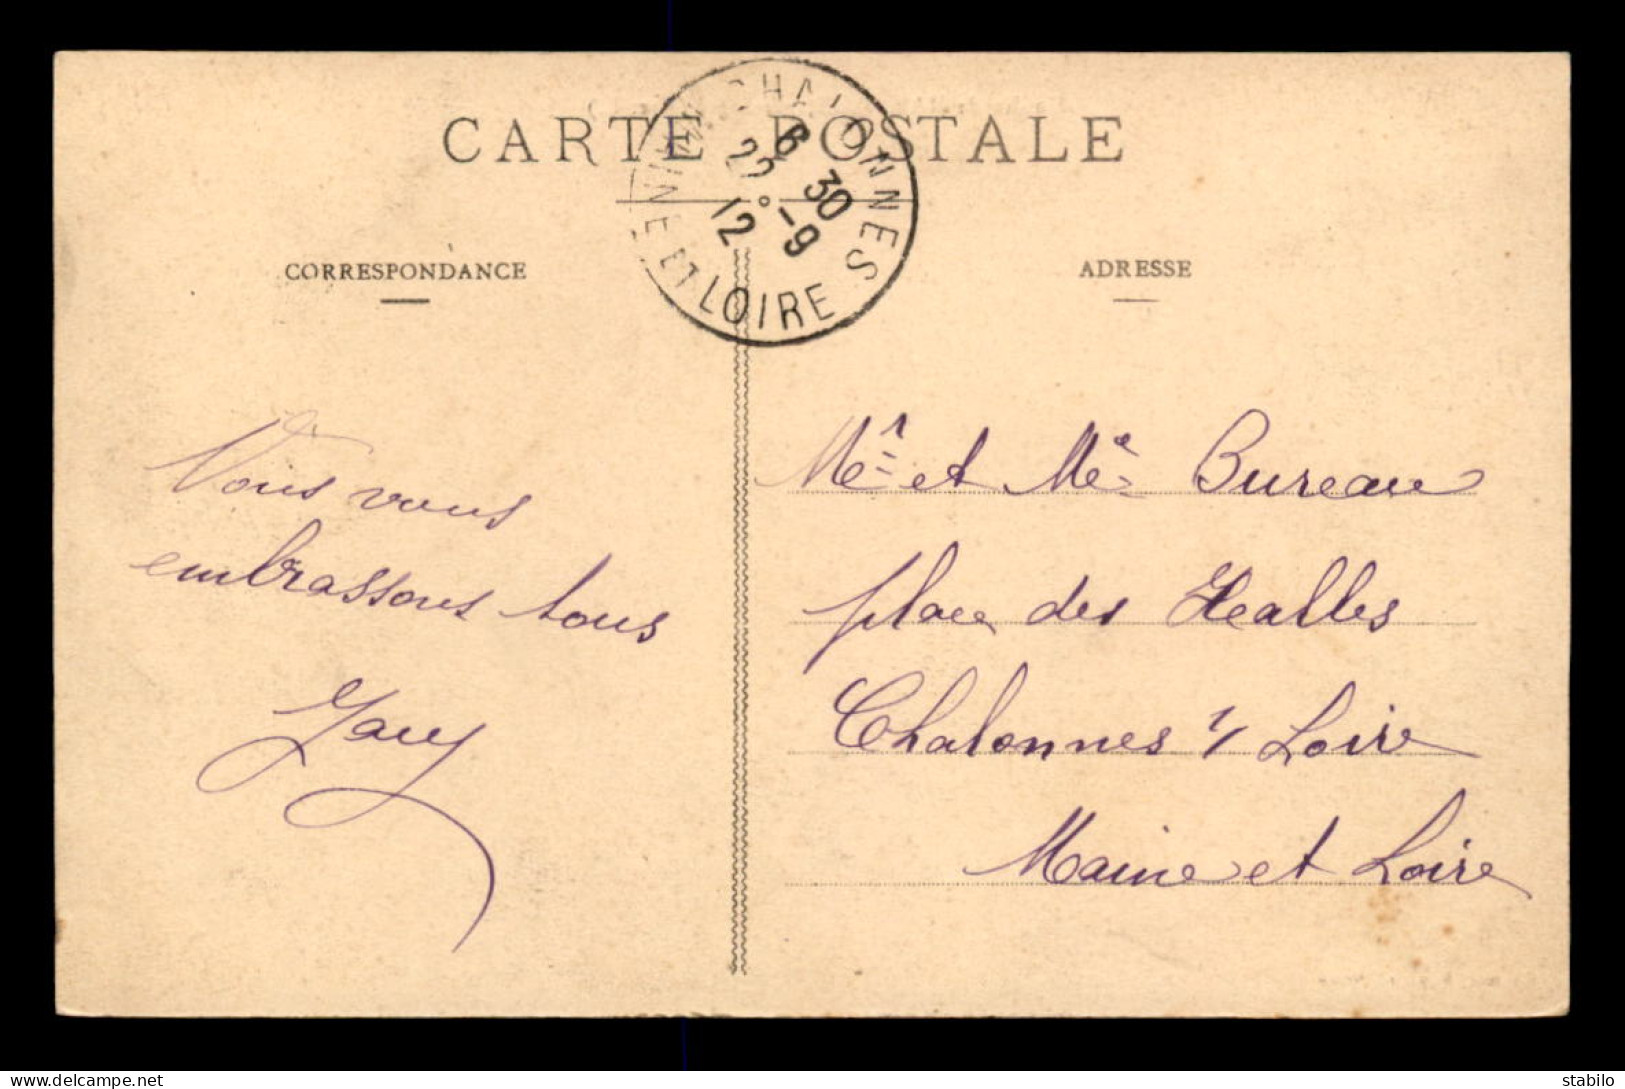 CARTE POSTALE
CHALONNES
MAINE ET LOIRE
6 30
22 - 9
12
CORRESPONDANCE
ADRESSE
Vous vous
embrassons tous
Mr et Me Bureau
place des Halles
Chalonnes s/ Loire
Maine et Loire
delcampe.net
stabilo